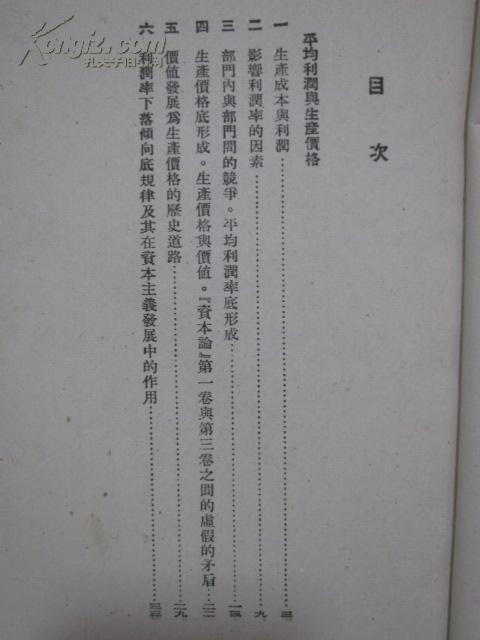 目次
平均利潤與生産價格
一 生產成本與利潤…………三
二 影響利潤率的因素…………九
三 部門內與部門間的競爭。平均利潤率底形成…………一三
四 生產價格底形成。生產價格與價值。『資本論』第一卷與第三卷之間的虛假的矛盾…二二
五 價值發展爲生產價格的歷史道路…………二九
六 利潤率下落傾向底規律及其在資本主義發展中的作用…………三三
Kongfz.com
孔夫子旧书网